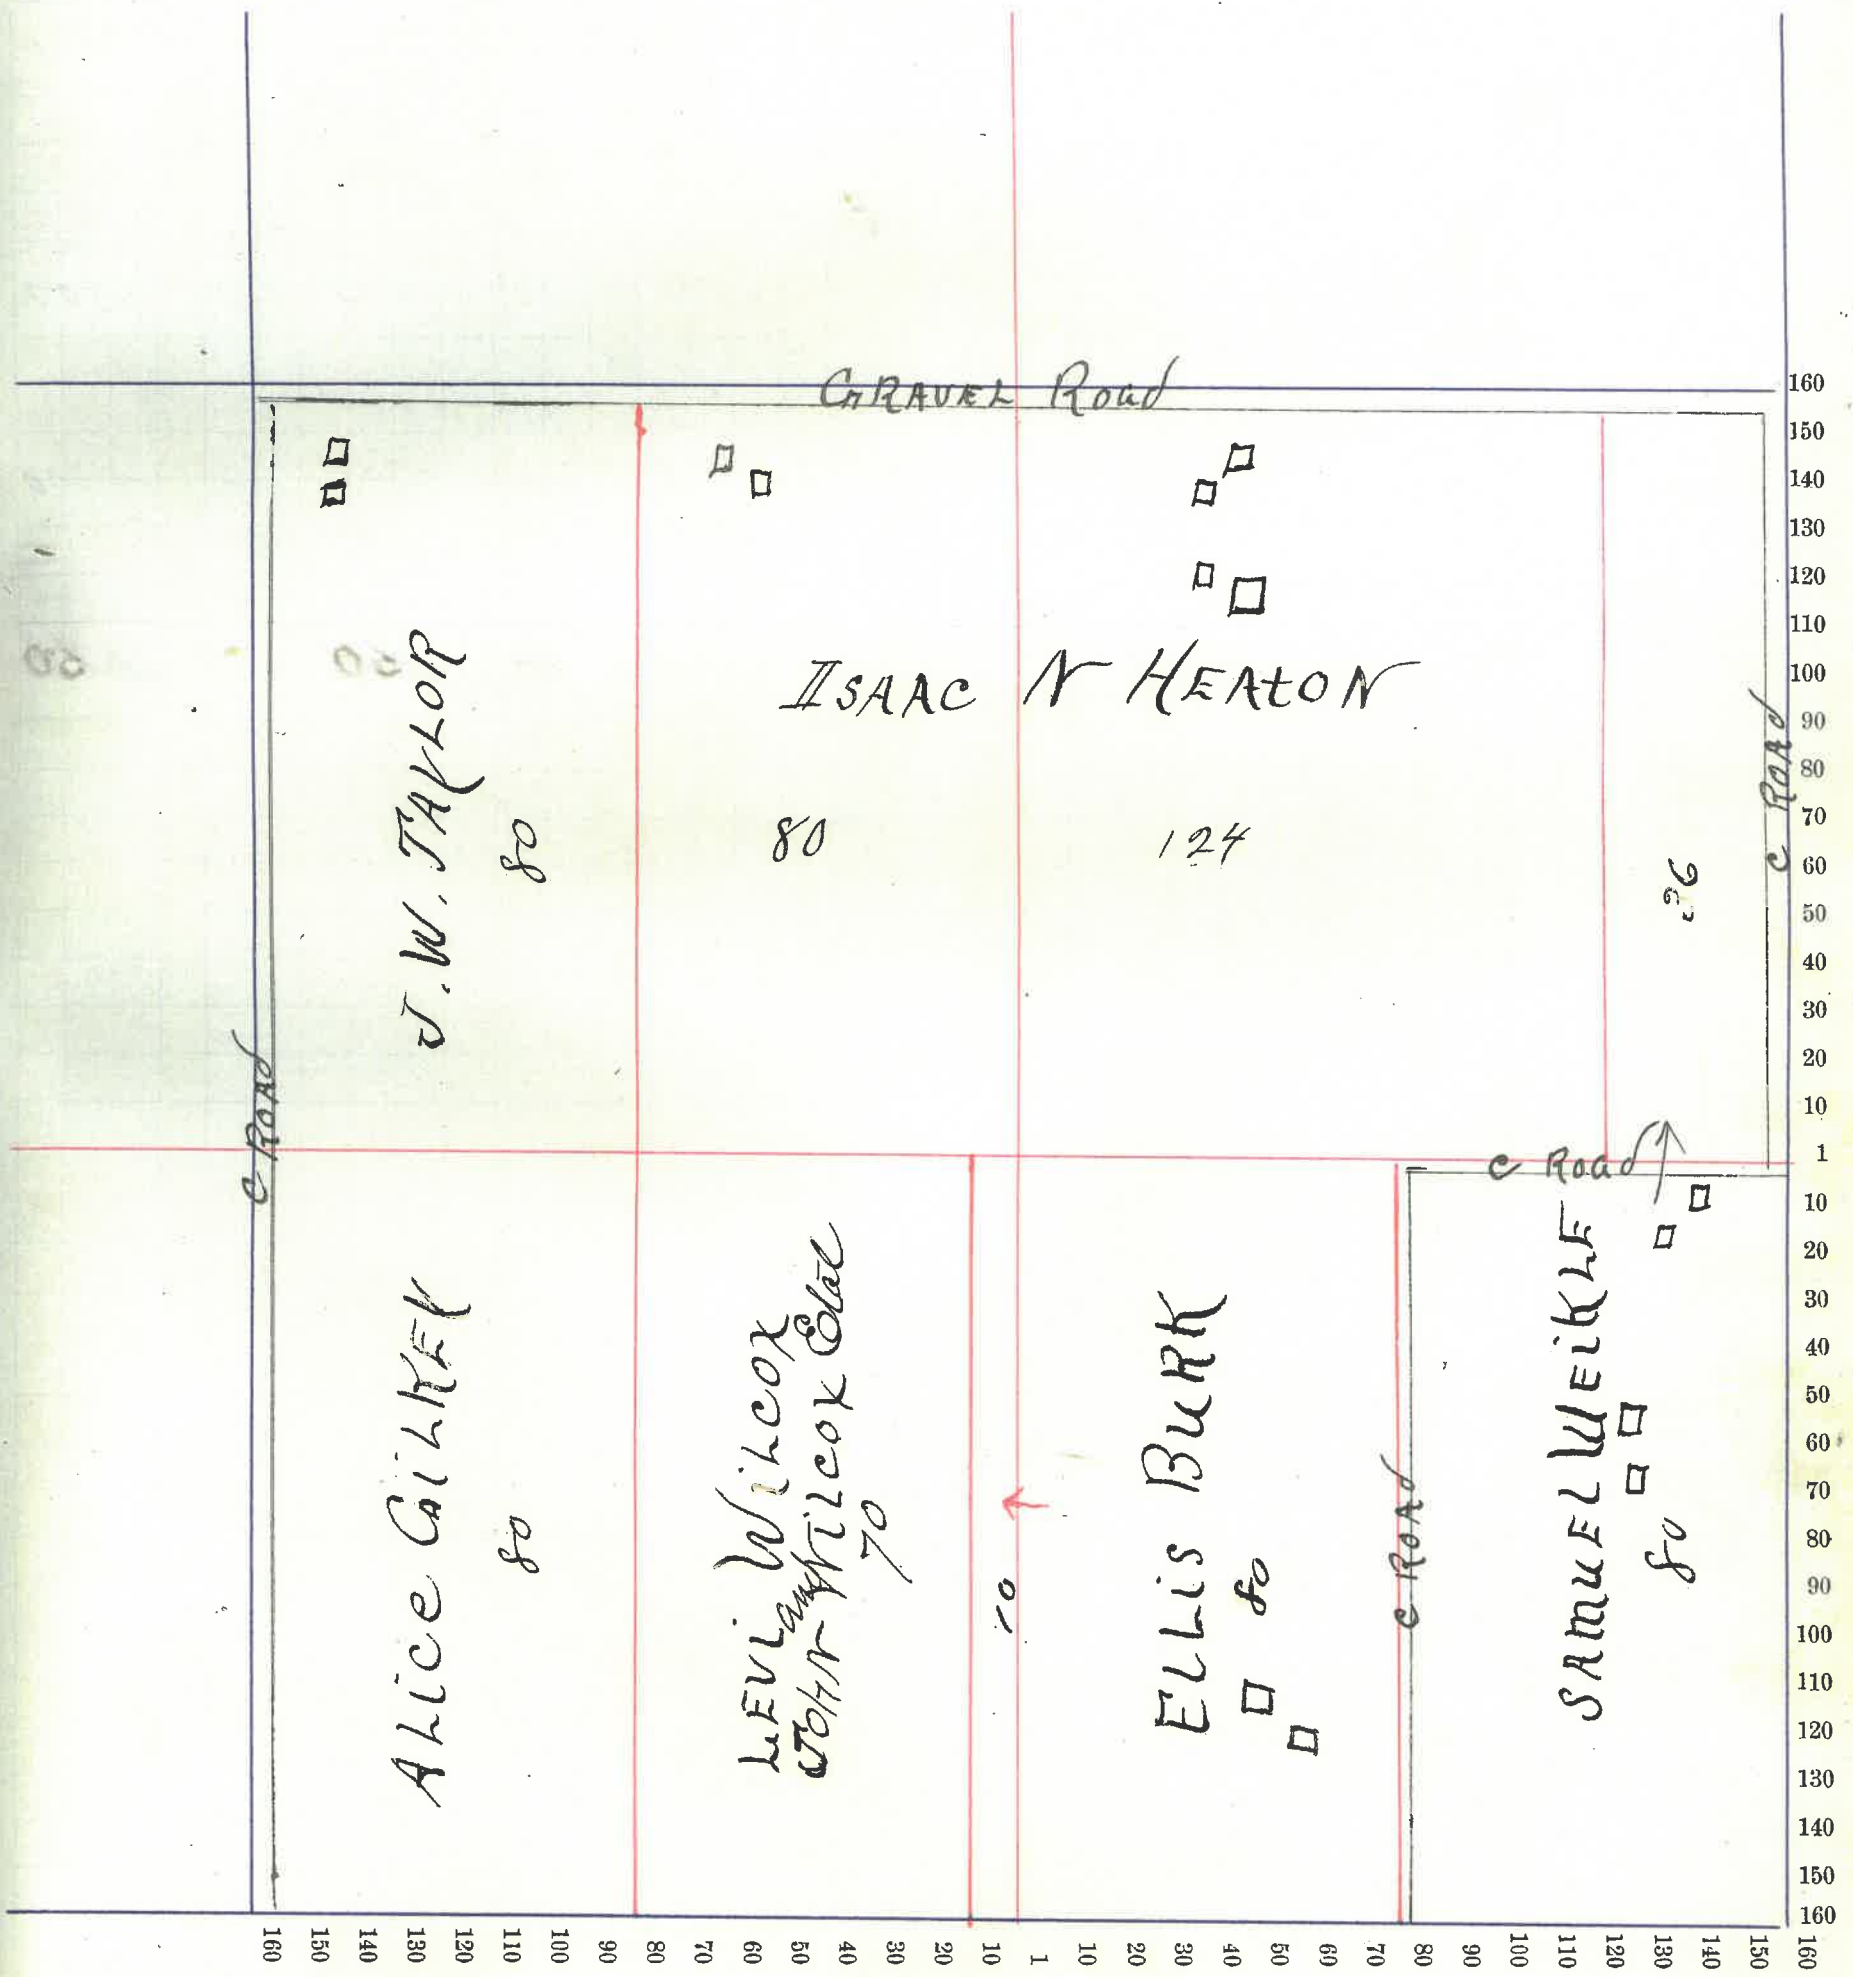 GRAVEL Road
ISAAC N HEATON
80
124
J. W. TAYLOR
80
36
C ROAD
C ROAD
C Road
ALiCE GiLKEY
80
LEVi WiLCOX
and
JOHN WiLCOX Etal
70
10
ELLiS BURK
80
C ROAD
SAMUEL WEiKLE
80
160
150
140
130
120
110
100
90
80
70
60
50
40
30
20
10
1
10
20
30
40
50
60
70
80
90
100
110
120
130
140
150
160
160
150
140
130
120
110
100
90
80
70
60
50
40
30
20
10
1
10
20
30
40
50
60
70
80
90
100
110
120
130
140
150
160